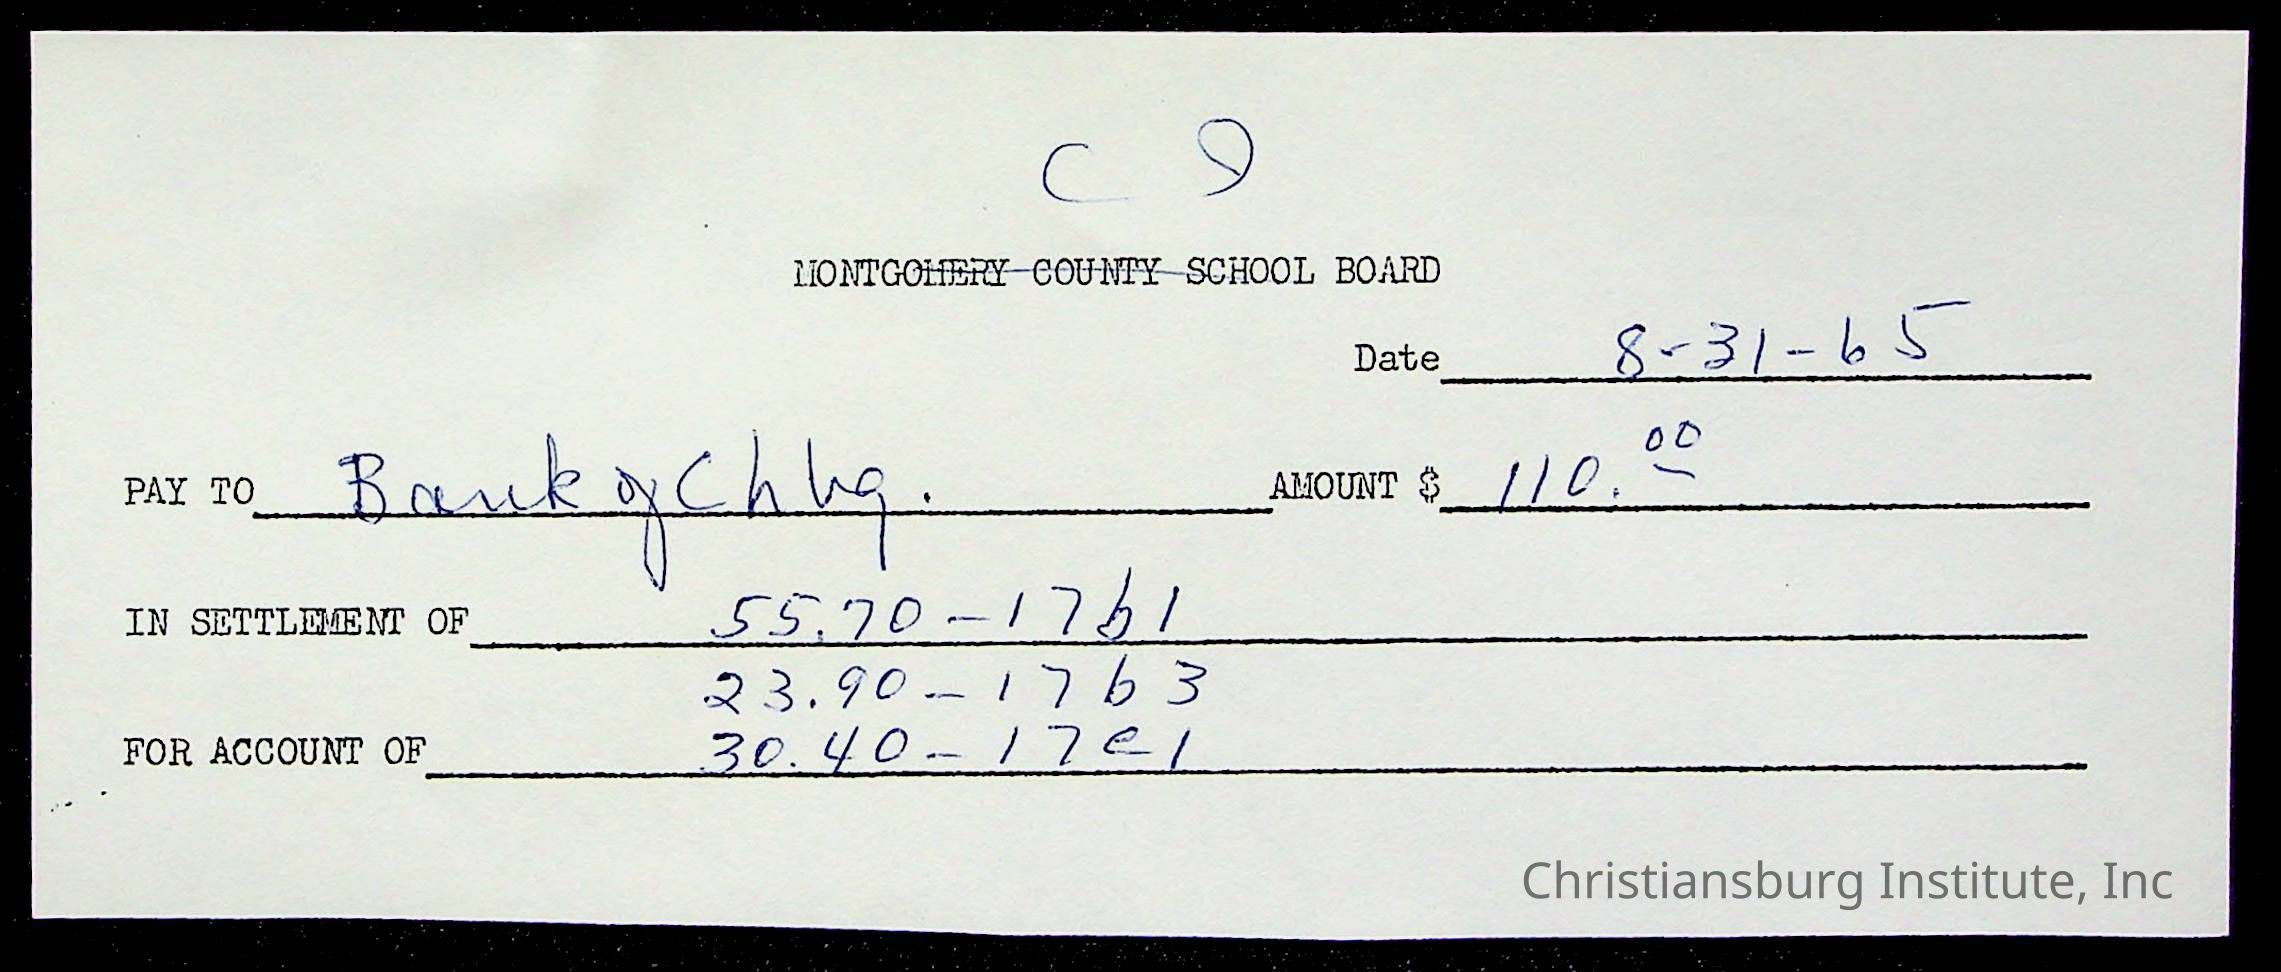 C D
MONTGOMERY COUNTY SCHOOL BOARD
Date 8-31-65
PAY TO Bank of Chbg. AMOUNT $ 110.00
IN SETTLEMENT OF 55.70-17b1
23.90-17b3
FOR ACCOUNT OF 30.40-17e1
Christiansburg Institute, Inc